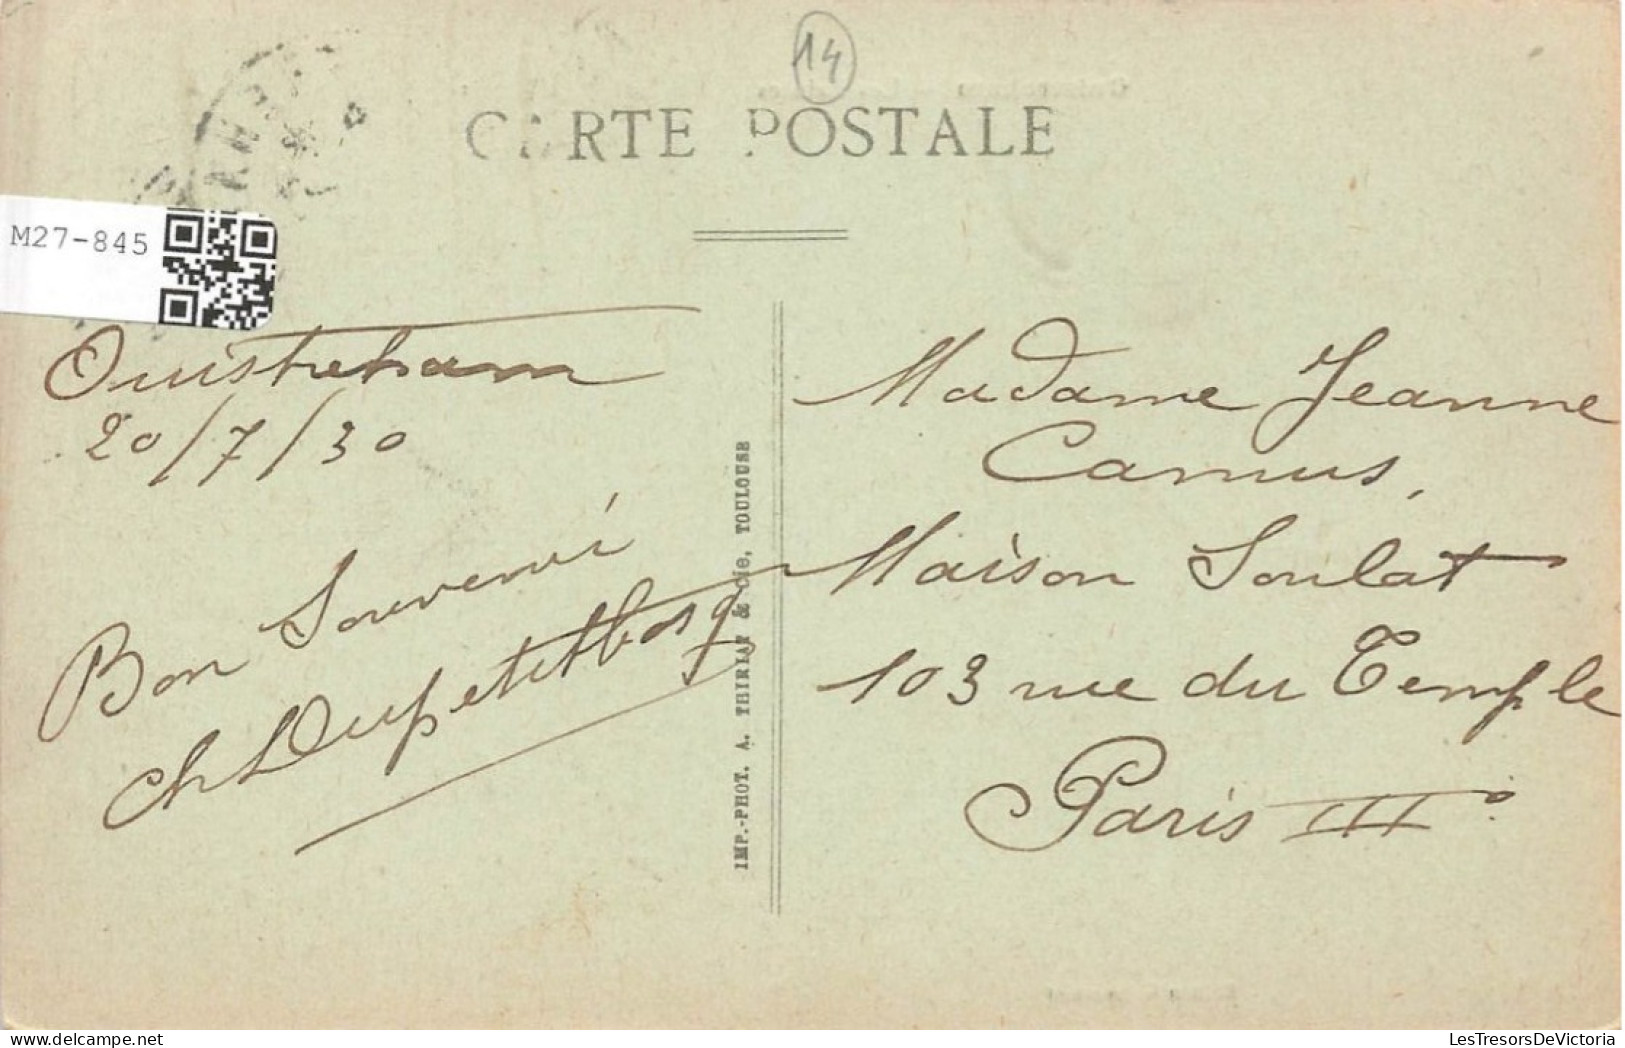 14
CARTE POSTALE
M27-845
Ouistreham
20/7/30
Bon Souvenir
Ch Dupetitbosq
IMP.-PHOT. A. THIRIAT & Cie, TOULOUSE
Madame Jeanne
Camus,
Maison Soulat
103 rue du Temple
Paris III°
LesTresorsDeVictoria
delcampe.net